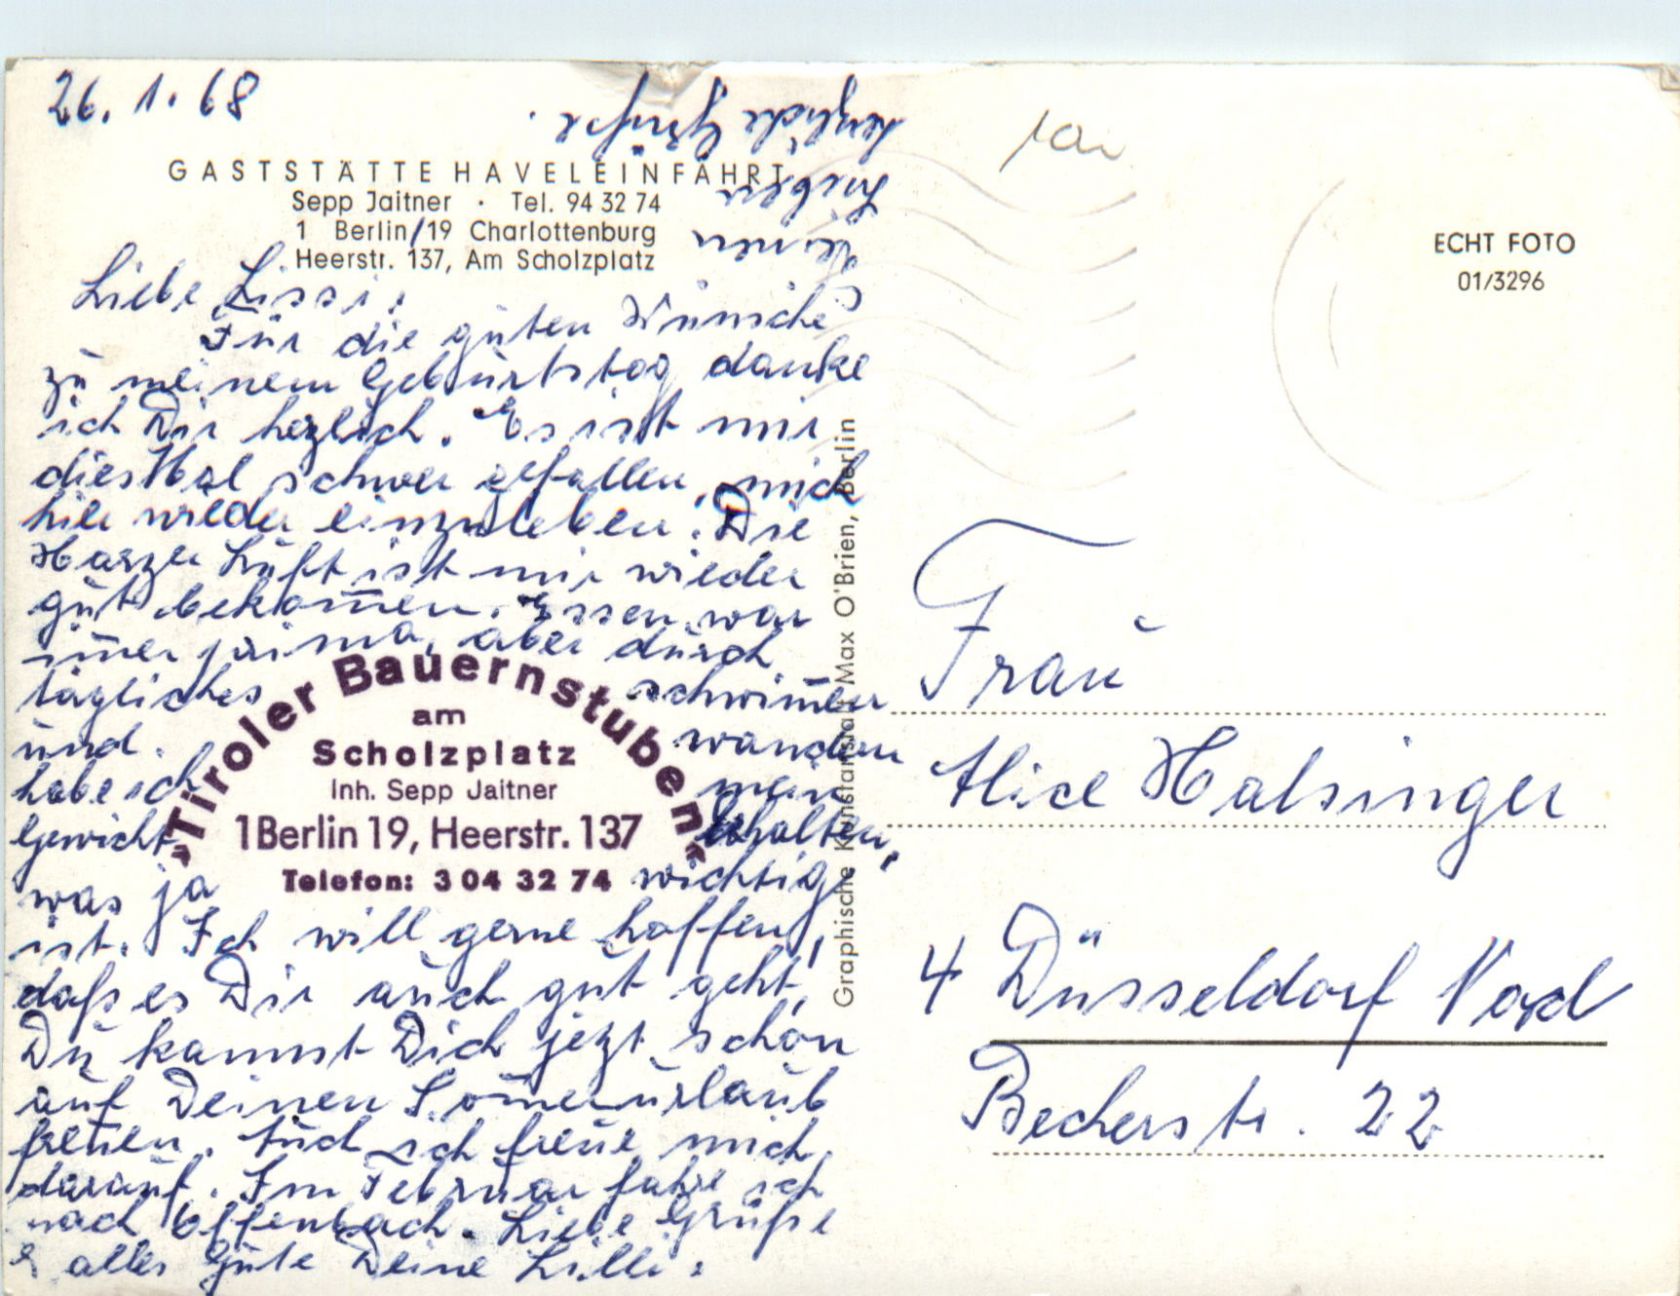 26. 1. 68
GASTSTÄTTE HAVELEINFAHRT
Sepp Jaitner · Tel. 94 32 74
1 Berlin/19 Charlottenburg
Heerstr. 137, Am Scholzplatz
Liebe Lissi,
Für die guten Wünsche
zu meinem Geburtstag danke
ich Dir herzlich. Es ist mir
diesMal schwer gefallen, mich
hier wieder einzuleben. Die
Harzer Luft ist mir wieder
gut bekom̅en. Essen war
im̅er prima, aber durch
tägliches schwim̅en
und wandern
habe ich mein
Gewicht behalten,
was ja wichtig
ist. Ich will gerne hoffen,
daß es Dir auch gut geht,
Du kannst Dich jezt schon
auf Deinen Som̅erurlaub
freuen. Auch ich freue mich
darauf. Im Februar fahre ich
nach Offenbach. Liebe Grüße
& alles Gute Deine Lilli.
Deinen
Lieben
herzliche Grüße.
»Tiroler Bauernstuben«
am
Scholzplatz
Inh. Sepp Jaitner
1 Berlin 19, Heerstr. 137
Telefon: 3 04 32 74
Graphische Kunstanstalt Max O'Brien, Berlin
ECHT FOTO
01/3296
Frau
Alice Halsinger
4 Düsseldorf Nord
Becherstr. 22